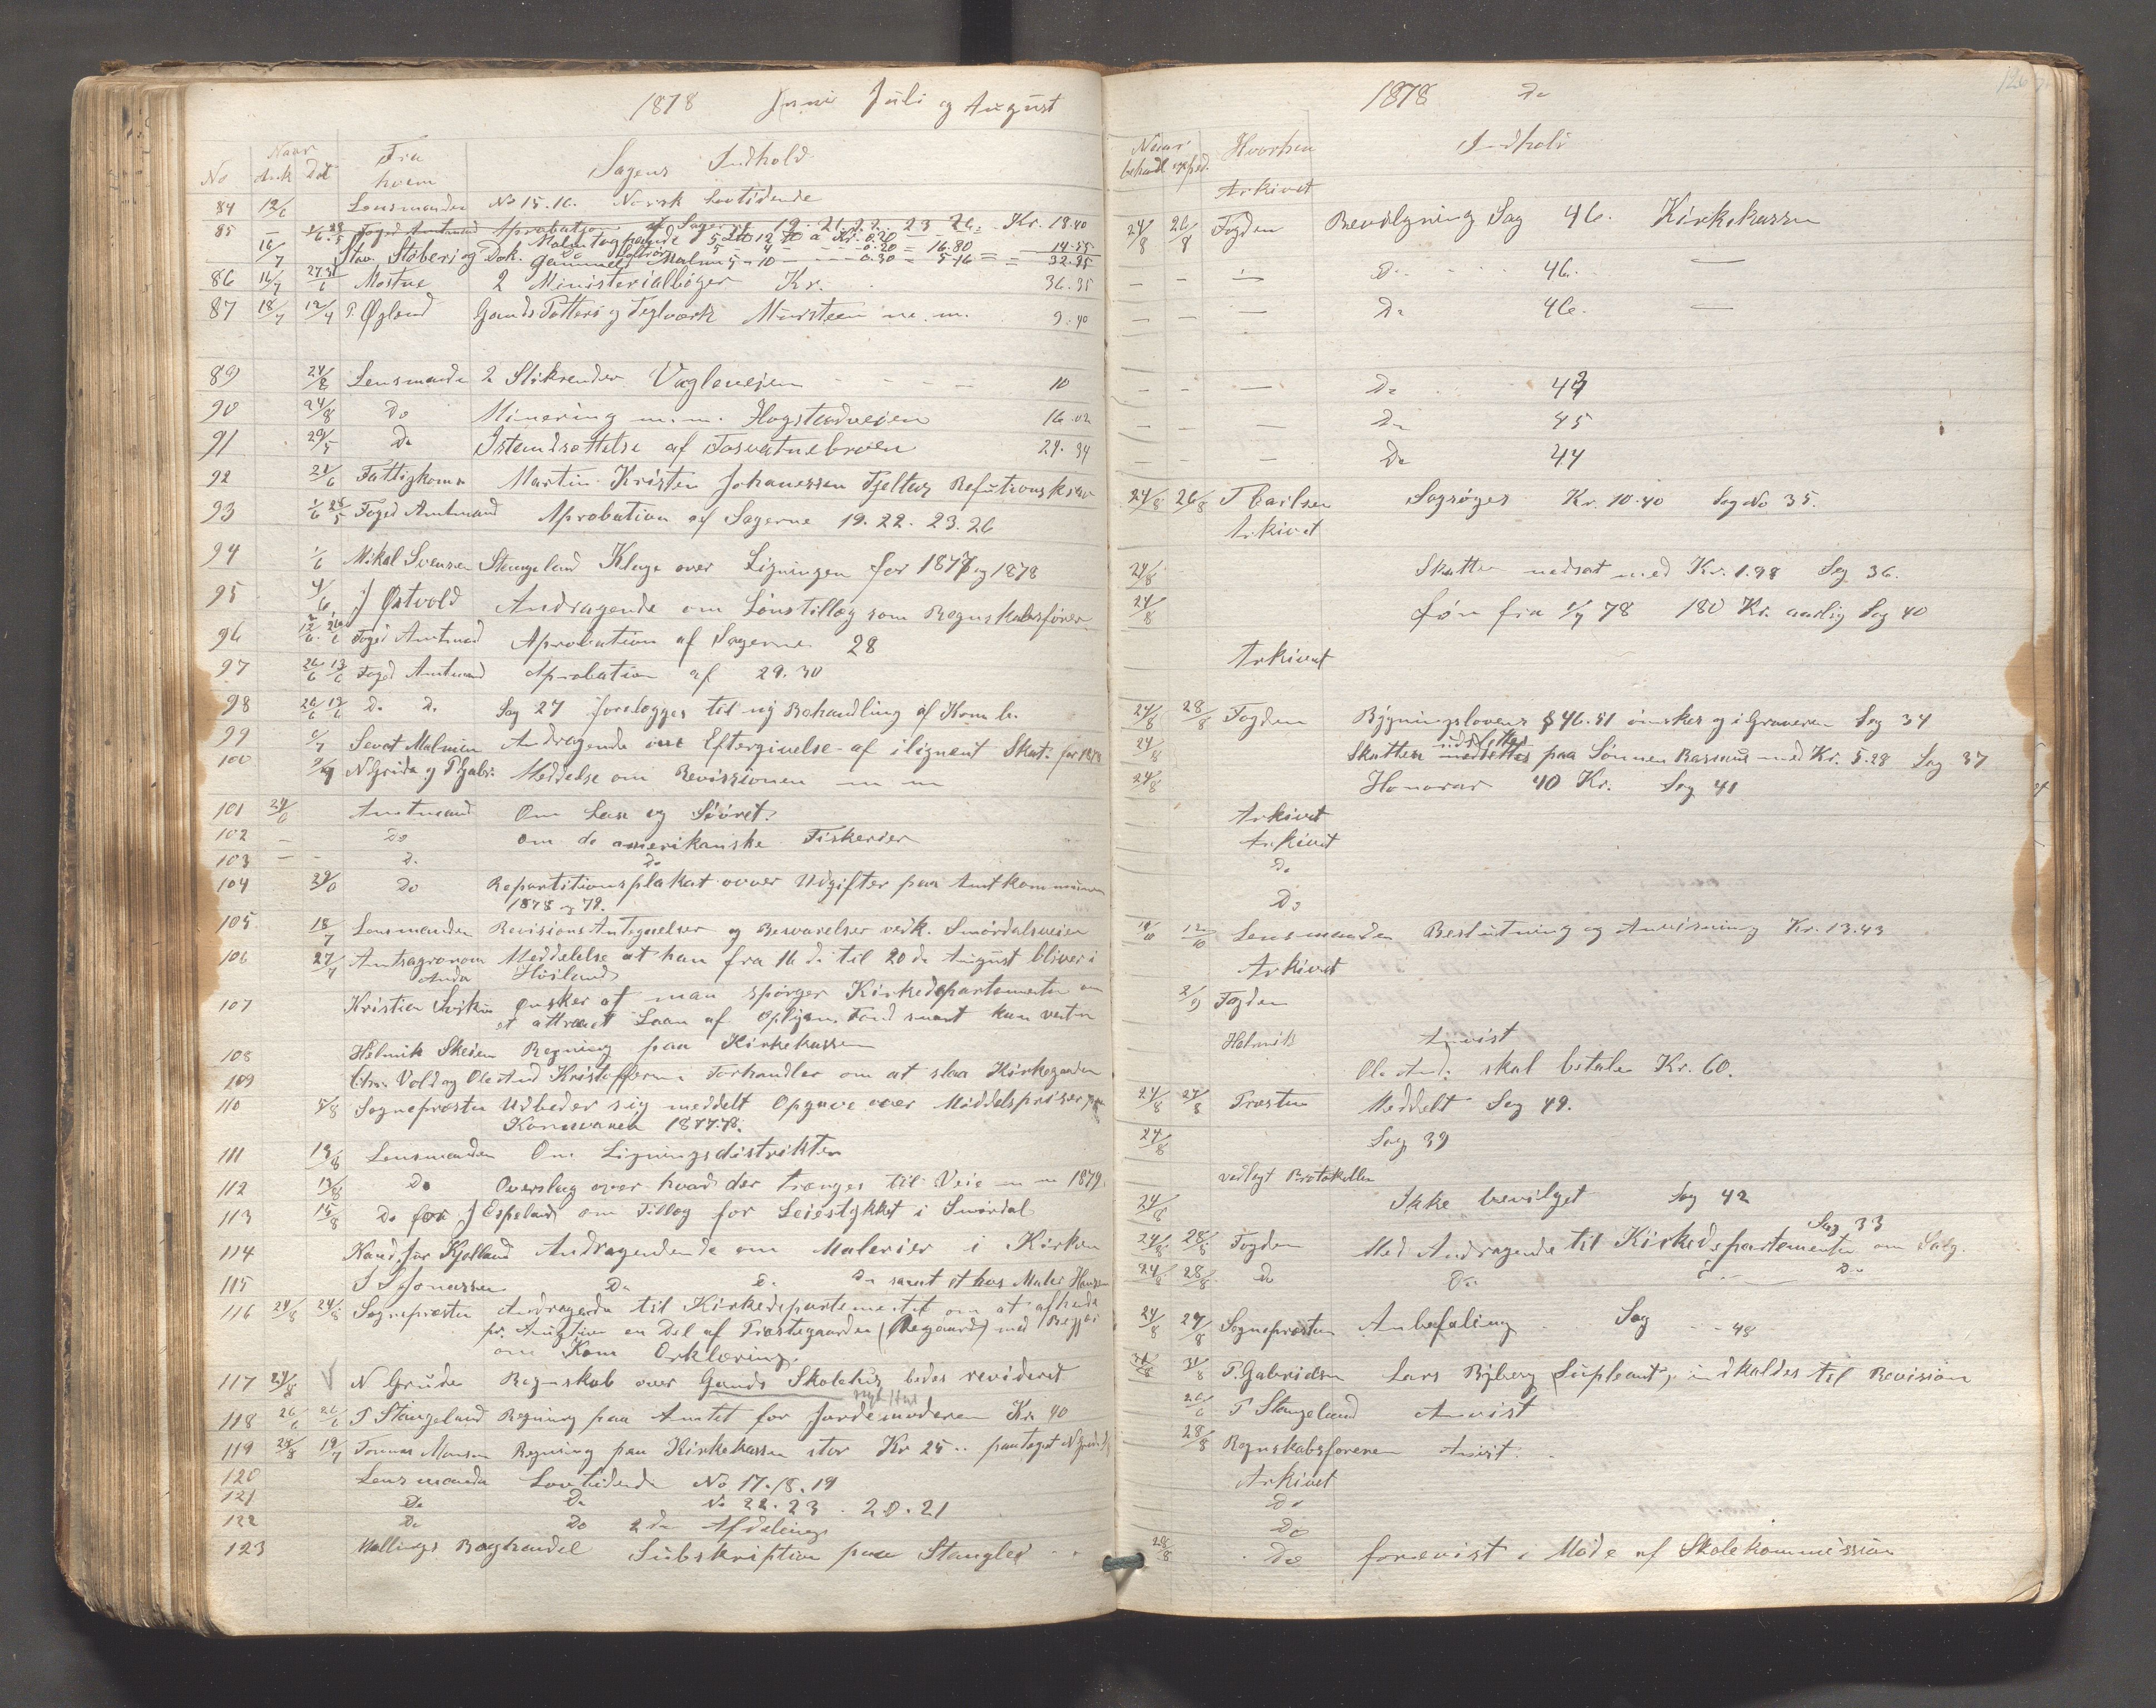 1878 Juni Juli og August
No Naar Ank Dat Fra hvem Sagens Indhold
84 12/6 Lensmanden No 15.16. Norsk Lovtidende
85 — 1/6 28/5 Foged Amtmand Aprobation af Sagerne 19. 21. 22. 23. 26. Kr. 18.40
16/7 Stav. Støberi og Dok. 14.55
Gammelt Malm 5 - 10 — 0.30 = 5.16 = 32.95
86 16/7 Mostue 2 Ministerialbøger Kr. 36.35
87 18/7 12/4 P. Øgland Gands Potteri og Teglværk Mursteen m. m. 9.40
89 24/8 Lensmanden 2 Stikrender Vagleveien 10
90 24/8 Do Minering m.m. Hogstadveien 16.02
91 29/5 Do Istandsættelse af Fosvatnebroen 24.34
92 21/6 Fattigkom Martin Kristen Johanessen Tjeltus Refutionskrav
93 1/6 28/5 Foged Amtmand Aprobation af Sagerne 19. 22. 23. 26
94 1/6 Mikal Svensen Stangeland Klage over Ligningen for 1877 og 1878
95 4/6 J Østvold Andragende om Lønstillæg som Regnskabsfører
96 Foged Amtmand Aprobation af Sagerne 28
97 26/6 13/6 Foged Amtmand Aprobation af 29. 30
98 26/6 19/6 Do Do Sag 27 forelægges til ny Behandling af Kom b.
99 6/7 Sevat Malmin Andragende om Eftergivelse af ilignent Skat for 1878
100 9/7 N Gride og P Gabr. Meddelse om Revissionen
101 24/6 Amtmand Om Lan og Søvret
102 — Do om de amerikanske Fiskerier
103 — Do Do
104 29/6 Do Repartitionsplakat over Udgifter paa Amtkommunen
1878 og 79.
105 18/7 Lensmanden Revisions Antegnelser og Besvarelser vedk. Smørdalsveien
106 27/7 Amtsagronom Meddelelse at han fra 16 de til 20 de August bliver i
Høiland
107 Kristian ønsker at man spørger Kirkedepartementet om
et attraaet Laan af Oplysn. Fond snart kan ventes
108 Helmik Skeien Regning paa Kirkekassen
109 Chr. Vold og Ole And Kristoffersen Forhandler om at slaa Kirkegaarden
110 5/8 Sognepræsten Udbeder sig meddelt Opgave over Middelspriser paa
Kornvarer 1877.78.
111 13/8 Lensmanden Om Ligningsdistrikten
112 13/8 Do Overslag over hvad der trænges til Veie m m 1879
113 15/8 Do for J Espeland om Tillæg for Leiestykket i Smørdal
114 Kand. jur Kjelland Andragendende om Malerier i Kirken
115 J Jonassen Do Do Do samt et hos Maler Hansen
116 24/8 24/8 Sognepræsten Andragende til Kirkedepartementet om at afhende
pr. Auktion en Del af Præstegaarden (Øregaard) med Begjær
om Kom Erklæring.
117 24/8 N Grude Regnskab over Gands Skolehus bedes revideret
118 26/6 26/6 T Stangeland Regning paa Amtet for Jordemoderen Kr. 40
119 24/8 19/7 Tonnes Monsen Regning paa Kirkekassen stor Kr 25
120 Lensmanden Lovtidende No 17. 18. 19
121 Do Do No 22. 23. 20. 21
122 Do Do 2 den Afdeling
123 Mallings Boghandel Subskription paa Stanglei
1878 Do
Naar behandl exped. Hvorhen Indhold
Arkivet
24/8 26/8 Fogden Bevilgning Sag 46. Kirkekassen
— — — Do 46. —
— — — Do 46. —
— — — Do 43
— — — Do 45
— — — Do 44
24/8 26/8 T Carlsen Sagsøges Kr. 10.40 Sag No 35.
Arkivet
24/8 Skatten nedsat med Kr. 1.98 Sag 36.
24/8 Løn fra 1/7 78 180 Kr. aarlig Sag 40
Arkivet
24/8 28/8 Fogden Bygningslovens § 46. 51 ønskes og i Graveren Sag 34
24/8 Skatten nedsættes paa Sønnen Rasmus med Kr. 5.28 Sag 37
24/8 Honorar 40 Kr. Sag 41
Arkivet
Arkivet
Do
Do
12/10 Lensmanden Beslutning og Anvisning Kr. 13.43
Arkivet
2/9 Fogden
Helmik Anvist
Ole And. skal betale Kr. 60.
24/8 27/8 Præsten Meddelt Sag 49.
24/8 Sag 39
vedlagt Protokollen
24/8 Ikke bevilget Sag 42
24/8 28/8 Fogden Med Andragende til Kirkedepartementet om Salg. Sag 33
24/8 28/8 Do Do Do
24/8 27/8 Sognepræsten Anbefaling Sag 48
31/8 31/8 P. Gabrielsen Lars Ryberg (Supleant) indkaldes til Revision
26/6 T Stangeland Anvist
28/8 Regnskabsføreren Anvist
Arkivet
Do
Do
28/8 Do forevist i Møde af Skolekommission